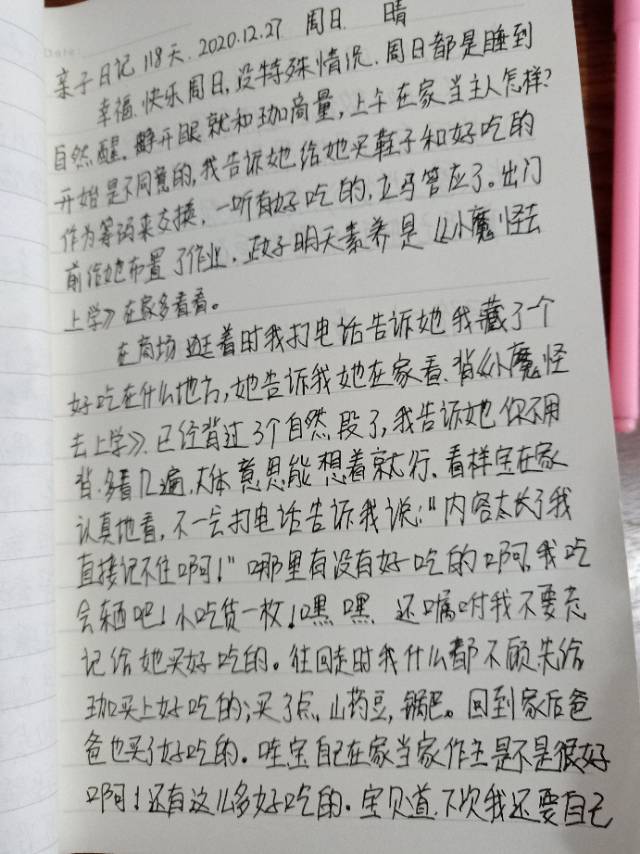 Date:
亲子日记 118天. 2020.12.27 周日 晴
幸福.快乐周日,没特殊情况.周日都是睡到
自然醒。睁开眼就和珈商量,上午在家当主人怎样?
开始是不同意的,我告诉她给她买鞋子和好吃的
作为筹码来交换,一听有好吃的,立马答应了。出门
前给她布置了作业.正好明天素养是《小魔怪去
上学》在家多看看。
在商场逛着时我打电话告诉她我藏了个
好吃在什么地方,她告诉我她在家看.背《小魔怪
去上学》.已经背过3个自然段了,我告诉她你不用
背.多看几遍.大体意思能想着就行、看样宝在家
认真地看,不一会打电话告诉我说:“内容太长了我
直接记不住啊!”哪里有没有好吃的啊,我吃
会东西吧!小吃货一枚!嘿嘿 还嘱咐我不要忘
记给她买好吃的。往回走时我什么都不顾先给
珈买上好吃的;买了点、山药豆,锅巴。回到家后爸
爸也买了好吃的。哇宝自己在家当家作主是不是很好
啊!还有这么多好吃的.宝贝道.下次我还要自己